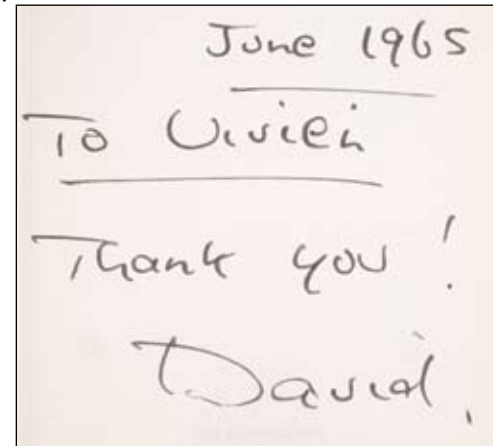 June 1965
To Vivien
Thank you!
David.